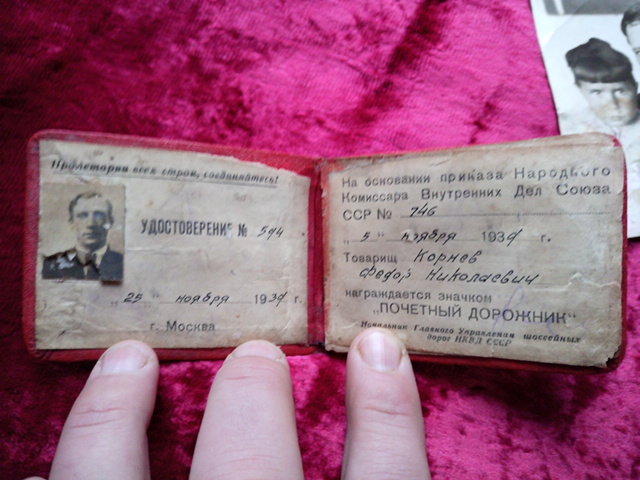 Пролетарии всех стран, соединяйтесь!
УДОСТОВЕРЕНИЕ № 594
„25" ноября 1939 г.
г. Москва
На основании приказа Народного
Комиссара Внутренних Дел Союза
ССР № 246
„5" ноября 1939 г.
Товарищ Корнев
Федор Николаевич
награждается значком
„ПОЧЕТНЫЙ ДОРОЖНИК"
Начальник Главного Управления шоссейных
дорог НКВД СССР